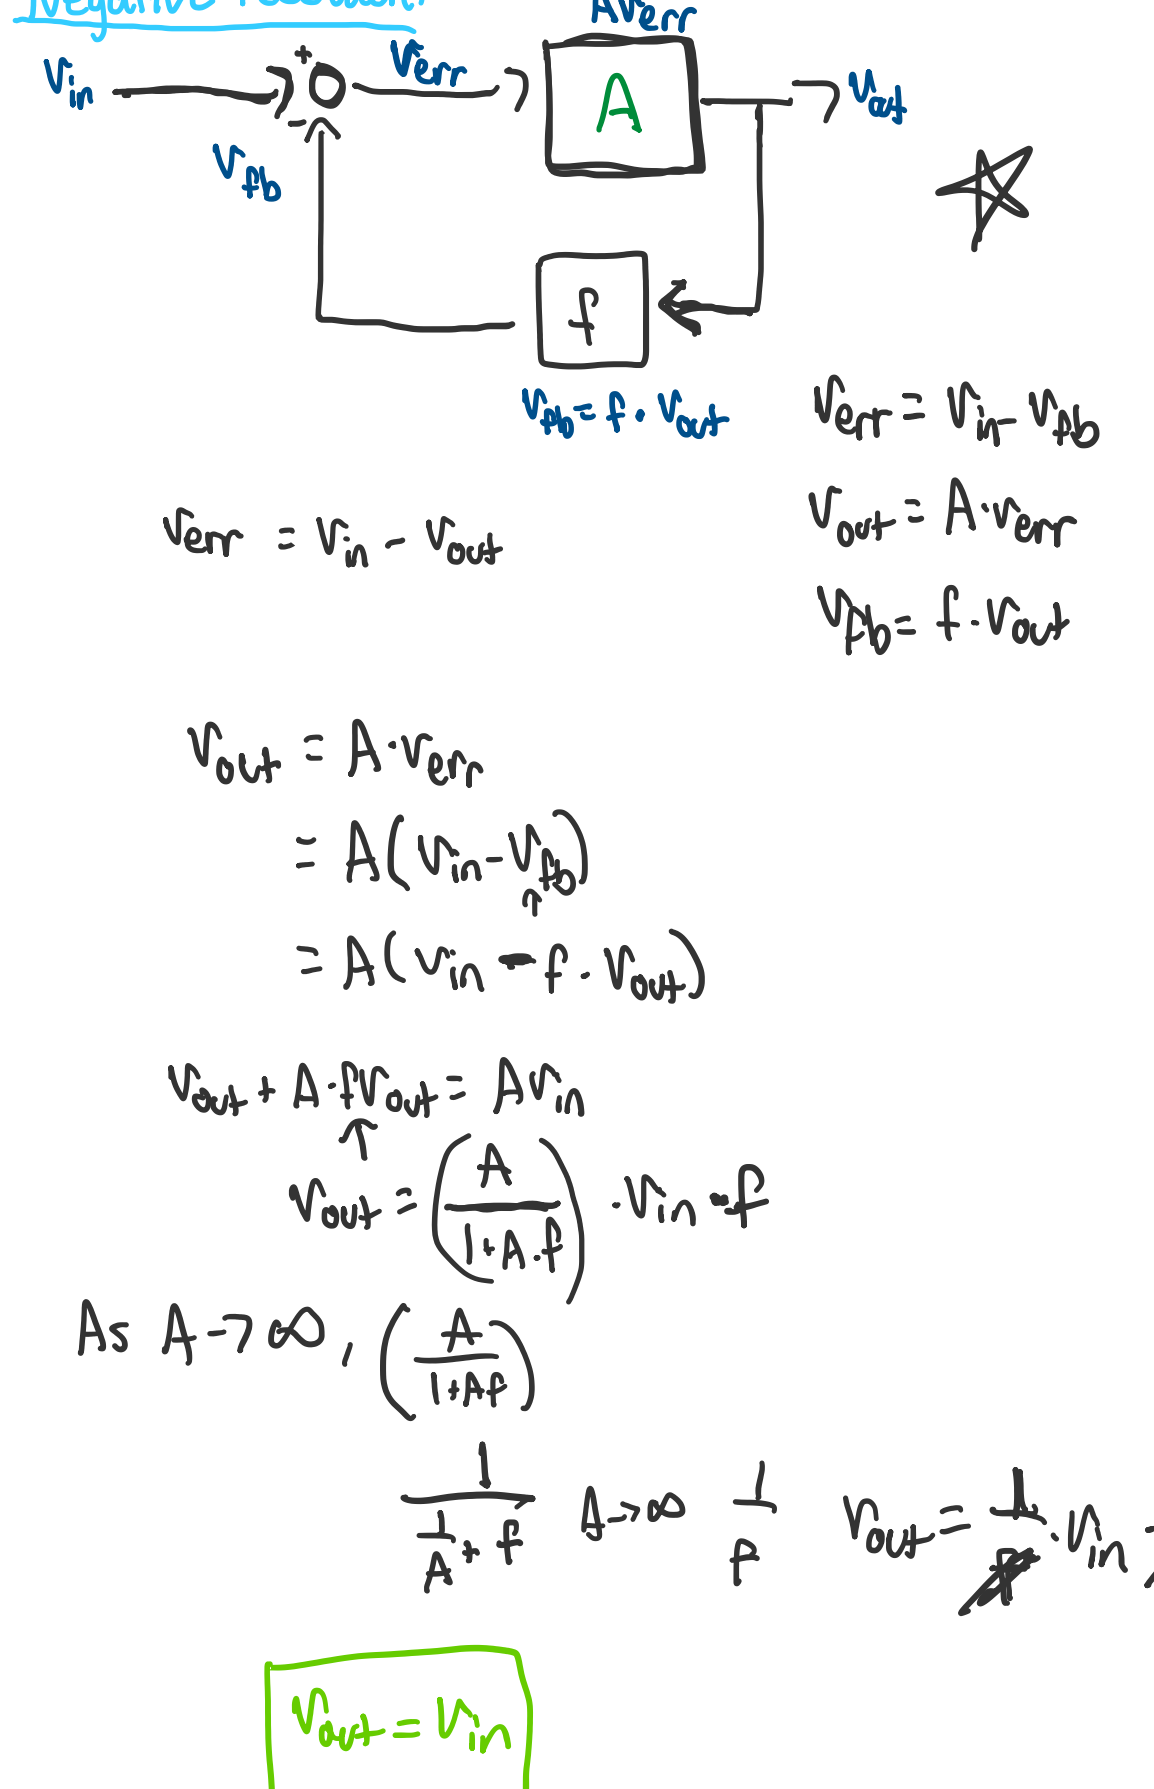 Negative Feedback
AVerr
Vin + Verr A Vout
- Vfb
f
Vfb = f · Vout
Verr = Vin - Vfb
Verr = Vin - Vout
Vout = A · Verr
Vfb = f · Vout
Vout = A · Verr
= A(Vin - Vfb)
↑
= A(Vin - f · Vout)
Vout + A · fVout = AVin
↑
Vout = (A/(1+A·f)) · Vin - f
As A → ∞, (A/(1+Af))
1/(1/A + f) A → ∞ 1/f Vout = 1/f · Vin
Vout = Vin